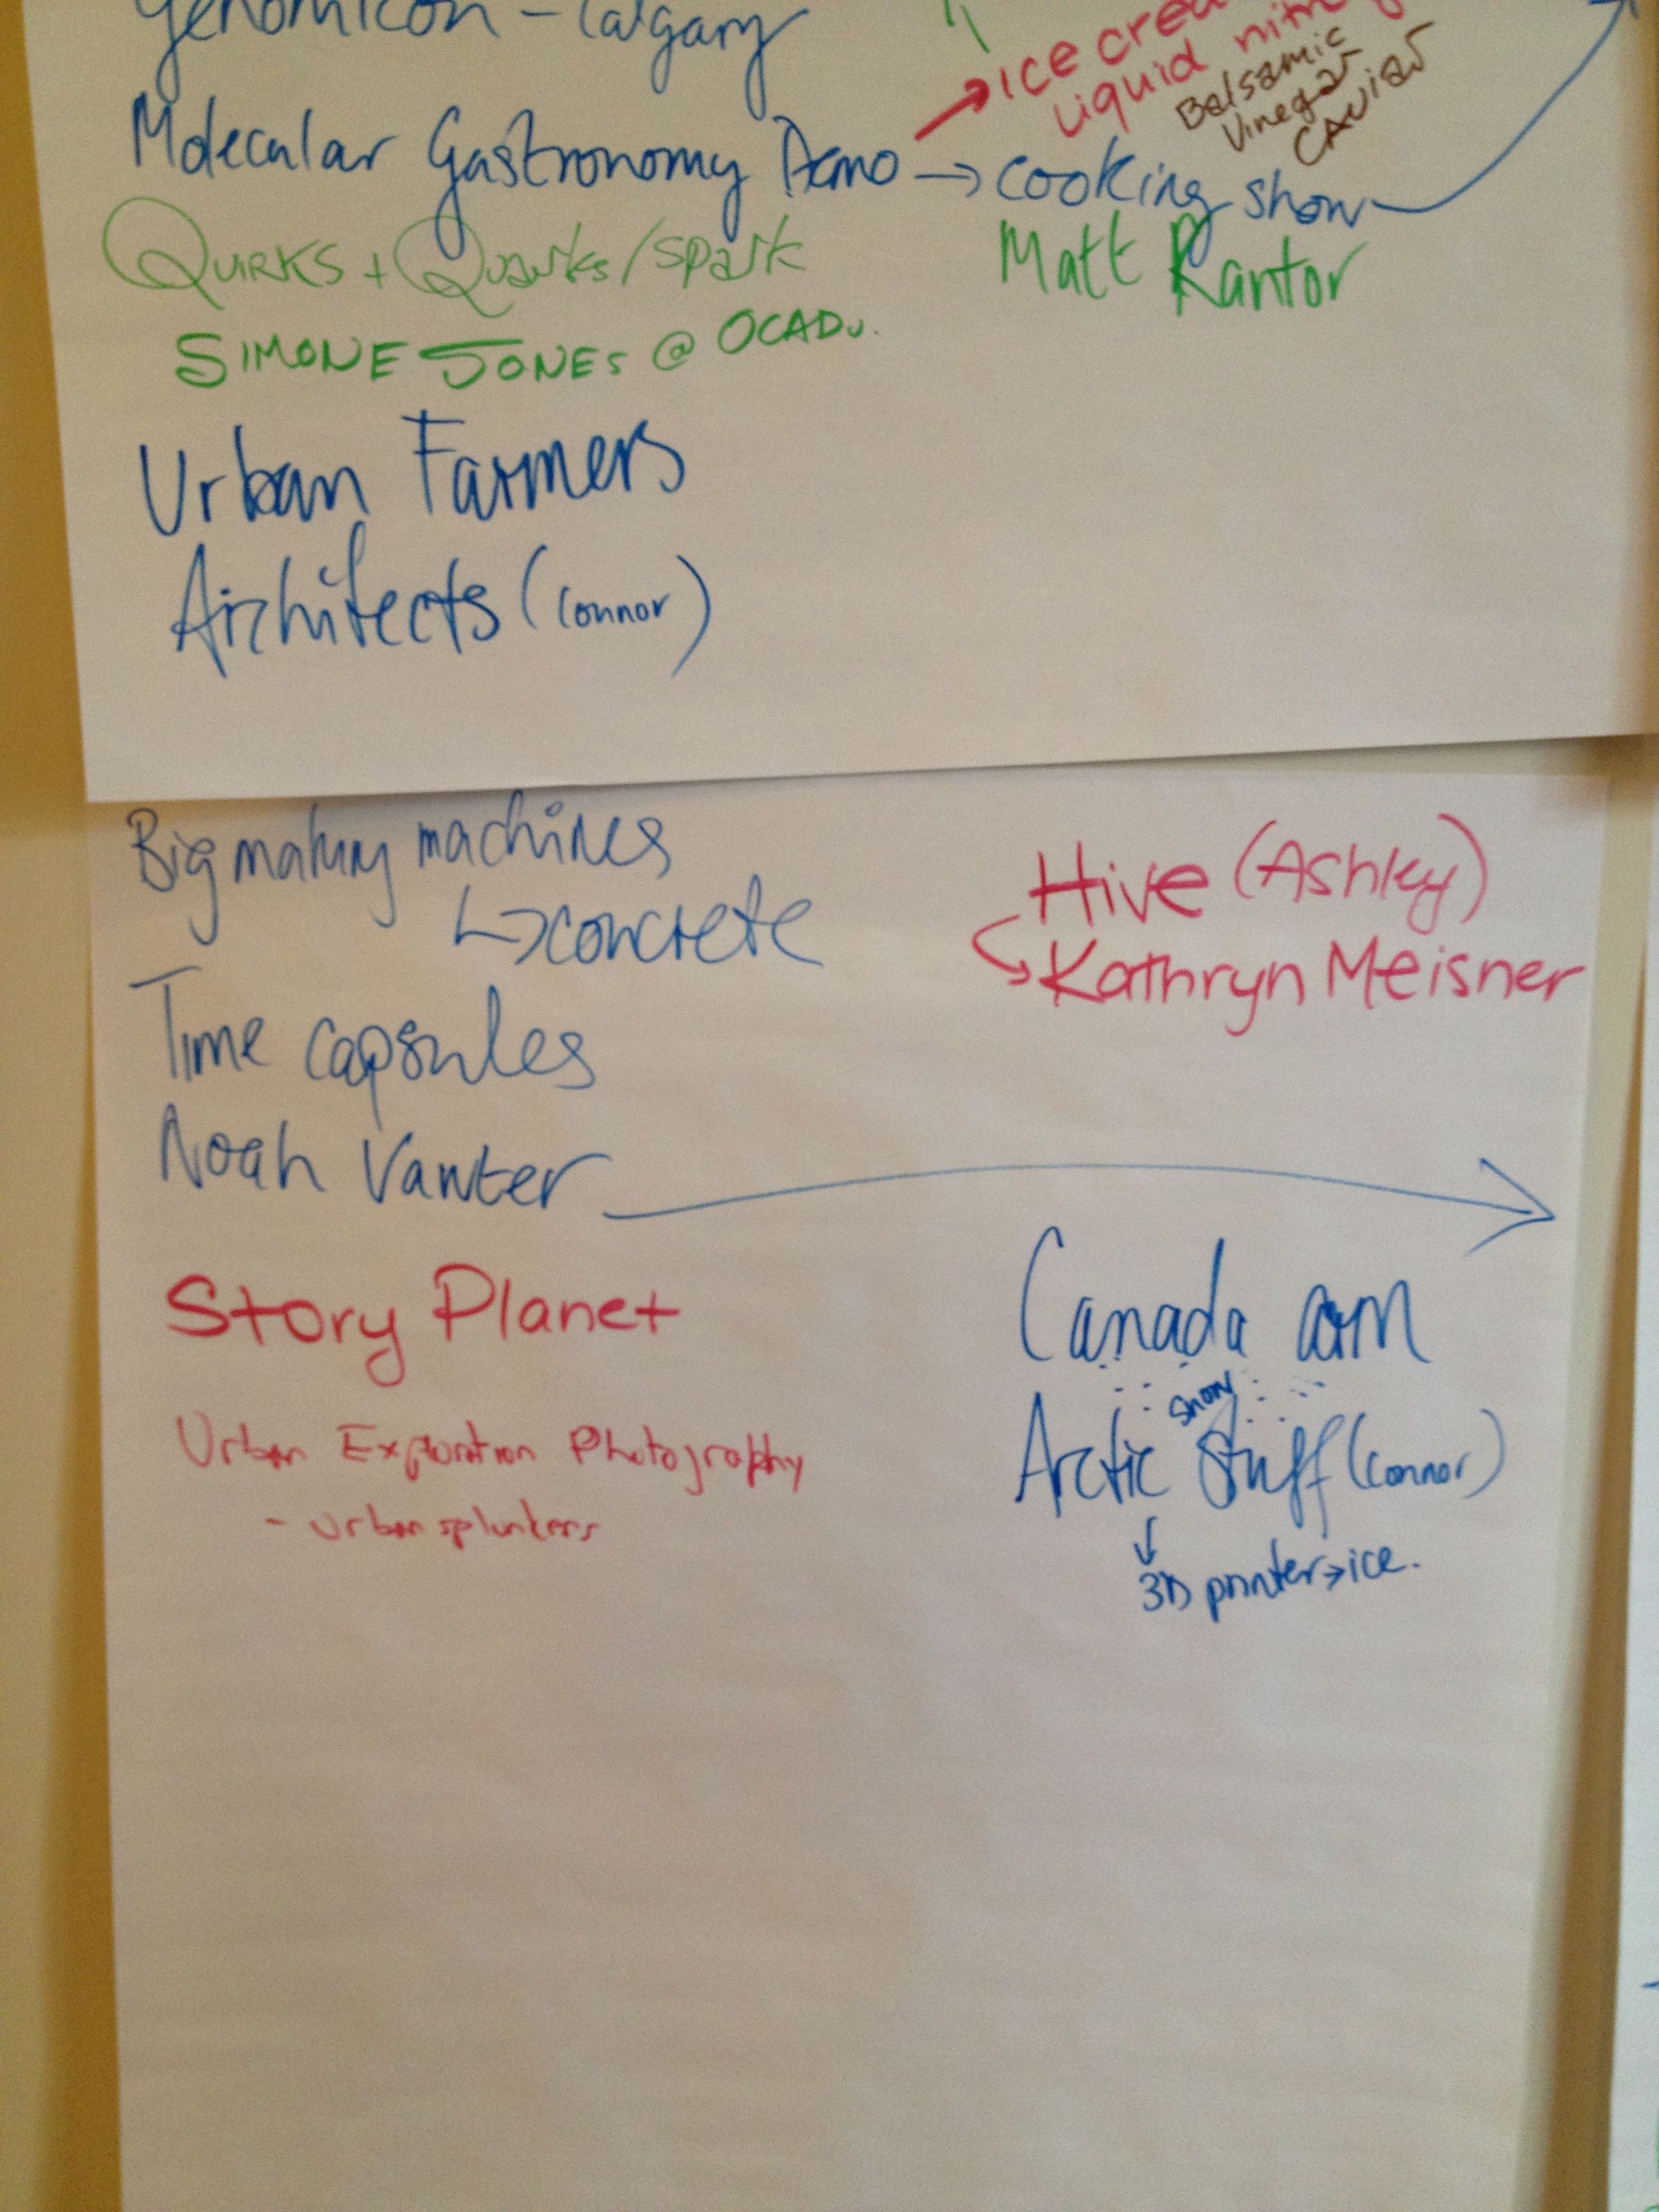 Genomicon - Calgary
→ Ice
Liquid
Balsamic
Vinegar
CAviar
Molecular Gastronomy Demo → cooking show
Quirks + Quarks / Spark
Matt Kantor
Simone Jones @ OCADU.
Urban Farmers
Architects (Connor)
Big making machines
↳ concrete
Hive (Ashley)
↳ Kathryn Meisner
Time capsules
Noah Vawter
Story Planet
Canada arm
Urban Exploration Photography
- urban splunkers
snow
Arctic Stuff (Connor)
↓
3D printer → ice.